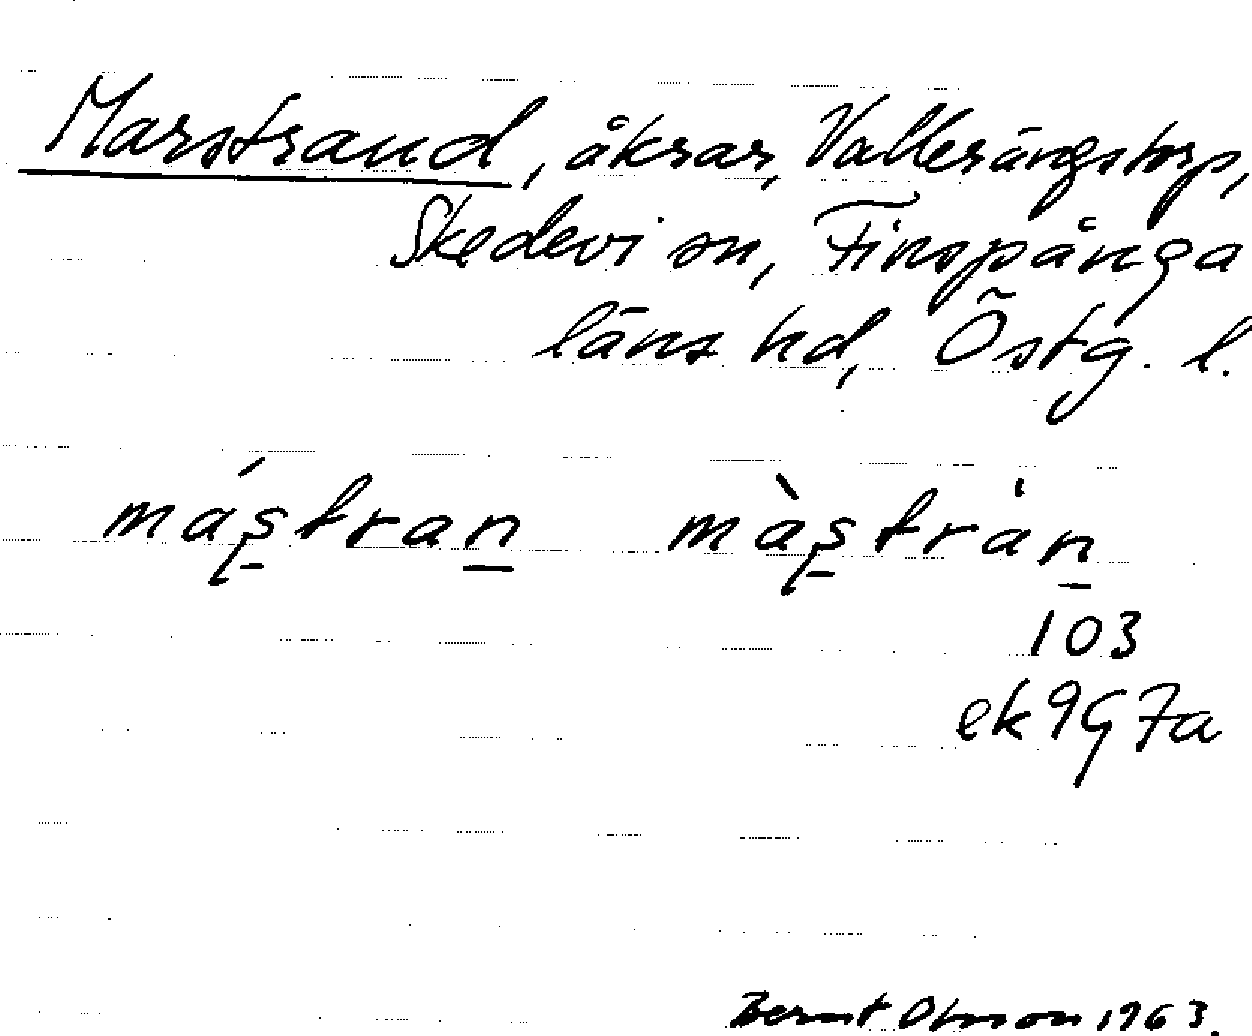 Marstrand, åkrar, Vallerängstorp,
Skedevi sn, Finspånga
läns hd, Östg. l.
máʂtran màʂtràn
103
ek 9G7a
Bernt Olsson 1963.